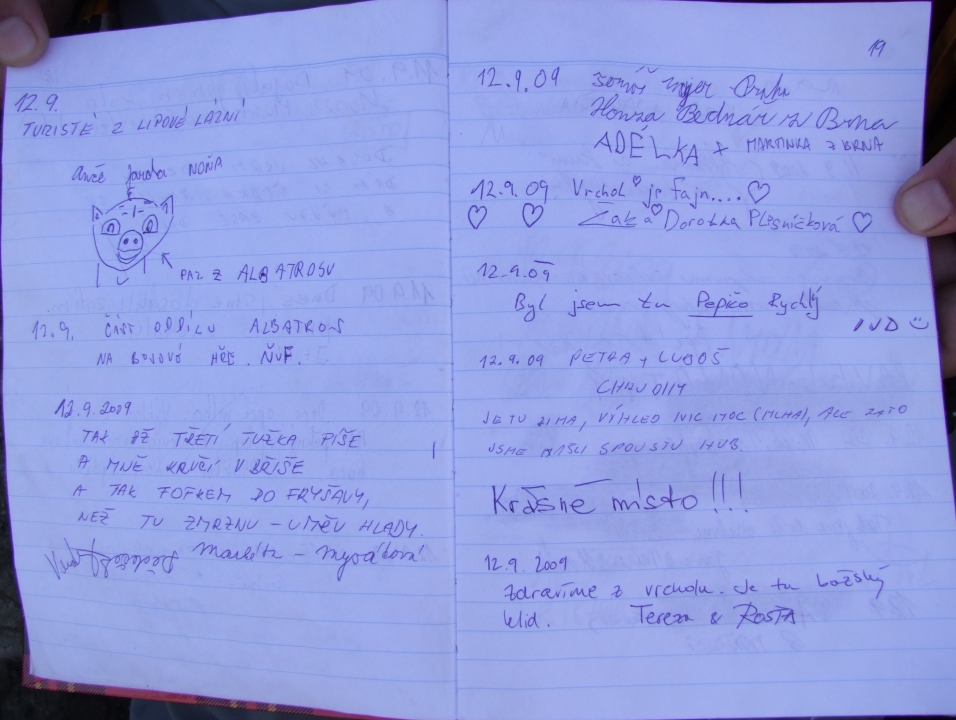 12.9.
TURISTÉ Z LIPOVÉ LÁZNÍ
Anče Jarda NOŇA
PAZ Z ALBATROSU
12.9. ČÁST ODDÍLU ALBATROS
NA BOJOVÉ HŘE. ŇUF.
12.9.2009
TAK UŽ TŘETÍ TUŽKA PÍŠE
A MNĚ KRUČÍ V BŘIŠE
A TAK FOFREM DO FRYŠAVY,
NEŽ TU ZMRZNU – UMŘU HLADY.
Markéta – Mysáková
19
12.9.09
Honza Bednář z Brna
ADÉLKA + MARTINKA Z BRNA
12.9.09 Vrchol je fajn.... ♡
♡ ♡ Žak a Dorotka Plesníčková ♡
12.9.09
Byl jsem tu Pepíčo Rychlý
JVD ☺
12.9.09 PETRA + LUBOŠ
JE TU ZIMA, VÝHLED NIC MOC (MLHA), ALE ZATO
JSME NAŠLI SPOUSTU HUB.
Krásné místo!!!
12.9.2009
Zdravíme z vrcholu. Je tu božský
klid. Tereza & ROSŤA